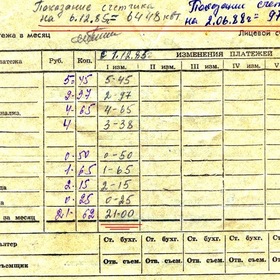 Показание счетчика
на 6.12.85г = 6448 квт
Показании счет
на 2.06.88г = 9
тежа в месяц
Лицевой сч
с 1.12.85г. ИЗМЕНЕНИЯ ПЛАТЕЖЕЙ
атежа Руб. Коп. I изм. II изм. III изм. IV изм. V
5-45 5-45
2-97 2-97
4-65 4-65
4 3-38
0-50 0-50
1-65 1-65
2-15 2-15
0-25 0-25
за месяц 21-62 21-00
Ст. бухг. Ст. бухг. Ст. бухг. Ст. бухг.
алтер
ъемщик Отв. съем. Отв. съем. Отв. съем. Отв. съем.
Ст. бухг. Ст. бухг. Ст. бухг. Ст. бухг.
Отв. съем. Отв. съем. Отв. съем. Отв. съем.